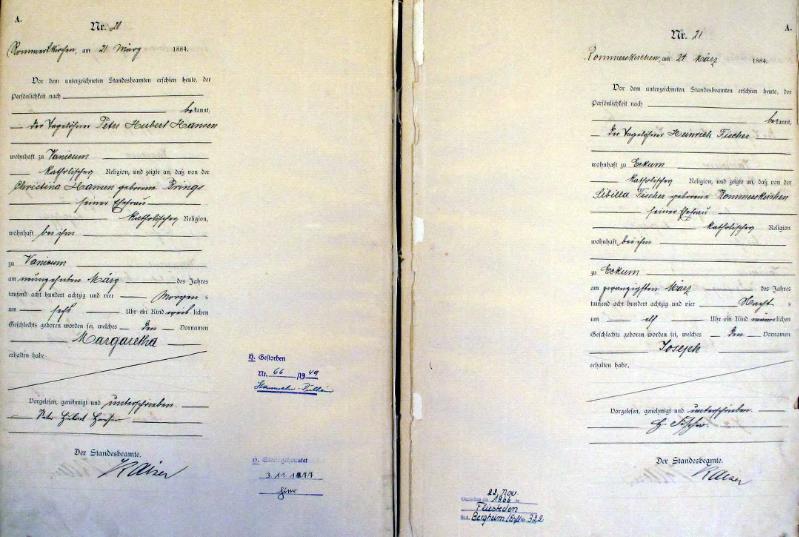 A.
Nr. 21
Rommerskirchen, am 21 März 1884.
Vor dem unterzeichneten Standesbeamten erschien heute, der
Persönlichkeit nach
bekannt,
der Tagelöhner Peter Hubert Hansen
wohnhaft zu Vanicum
katholischer Religion, und zeigte an, daß von der
Christina Hansen geborene Brings
seiner Ehefrau
katholischer Religion,
wohnhaft bei ihm
zu Vanicum
am neunzehnten März des Jahres
tausend acht hundert achtzig und vier Morgens
um sechs Uhr ein Kind weiblichen
Geschlechts geboren worden sei, welches den Vornamen
Margaretha
erhalten habe.
Vorgelesen, genehmigt und unterschrieben
Peter Hubert
Der Standesbeamte.
Kaiser
Gestorben
Nr. 66 /19
3.11.
A.
Nr. 21
Rommerskirchen, am 21 März 1884.
Vor dem unterzeichneten Standesbeamten erschien heute, der
Persönlichkeit nach
bekannt,
der Tagelöhner Heinrich Fischer
wohnhaft zu Eckum
katholischer Religion, und zeigte an, daß von der
Sibilla Fischer geborene Rommerskirchen
seiner Ehefrau
katholischer Religion
wohnhaft bei ihm
zu Eckum
am zwanzigsten März des Jahres
tausend acht hundert achtzig und vier Nachts
um elf Uhr ein Kind männlichen
Geschlechts geboren worden sei, welches den Vornamen
Joseph
erhalten habe.
Vorgelesen, genehmigt und unterschrieben
H. Fischer
Der Standesbeamte.
Kaiser
23. Nov.
Fliesteden
Bergheim (Erft) 322